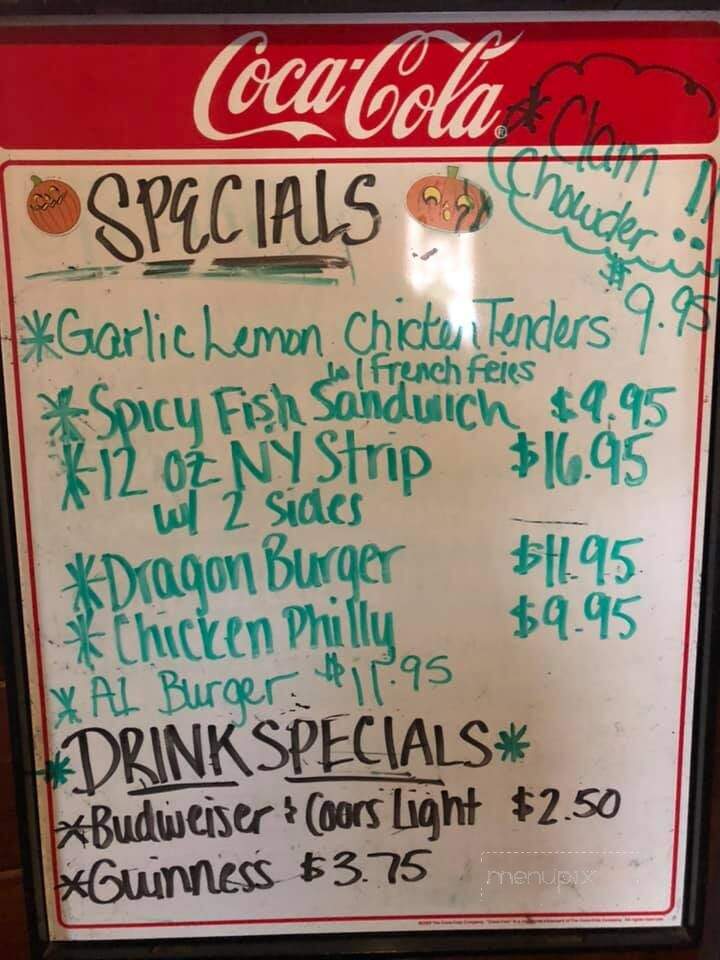 Coca-Cola®
*Clam
Chowder!!
SPECIALS
*Garlic Lemon Chicken Tenders $9.95
w/ French Feies
*Spicy Fish Sandwich $9.95
*12 oz NY Strip $16.95
w/ 2 sides
*Dragon Burger $11.95
*Chicken Philly $9.95
*A1 Burger $11.95
*DRINK SPECIALS*
*Budweiser & Coors Light $2.50
*Guinness $3.75
menupix